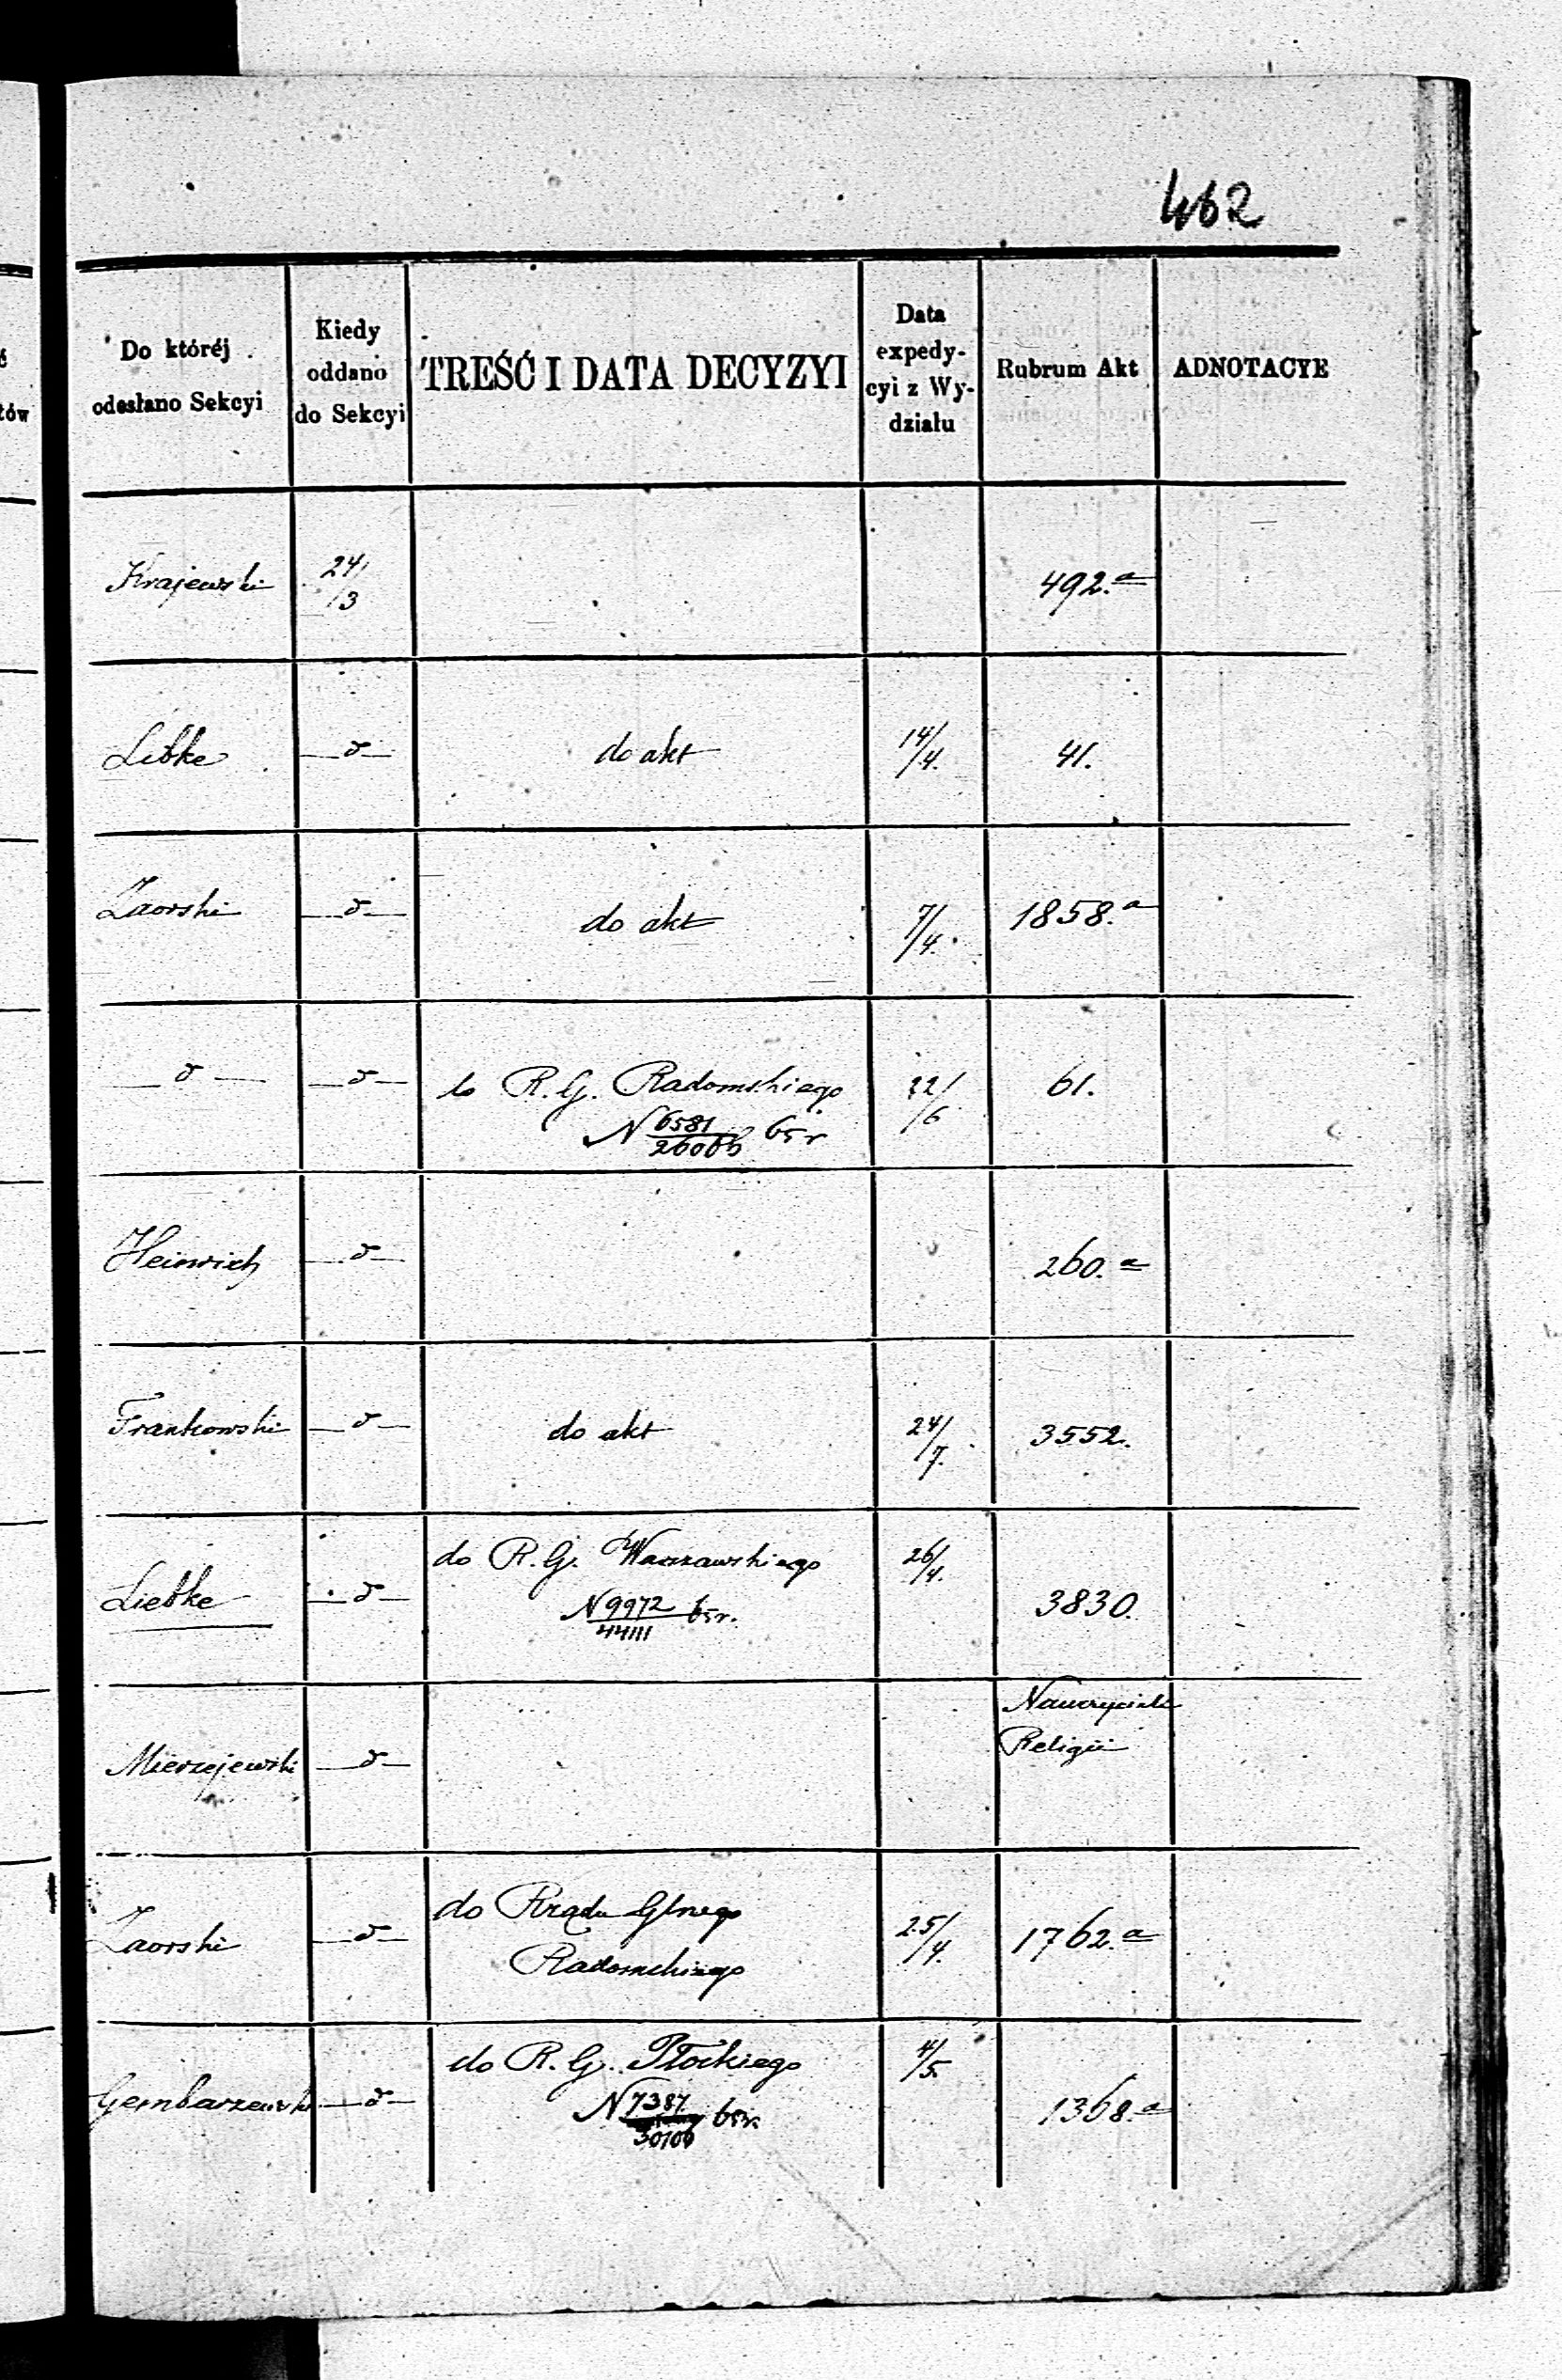 462
Do któréj odesłano Sekcyi
Kiedy oddano do Sekcyi
TREŚĆ I DATA DECYZYI
Data expedycyi z Wydziału
Rubrum Akt
ADNOTACYE
Krajewski 24/3 492.a
Libke —d— do akt 14/4. 41.
Zaorski —d— do akt 7/4. 1858.a
—d— —d— do R. G. Radomskiego 22/6 61.
N 6581/26066 65 r
Heinrich —d— 260.a
Frankowski —d— do akt 24/7. 3552.
Liebke —d— do R. G. Warszawskiego 26/4. 3830.
N 9972/44111 65 r.
Mierzejewski —d— Nauczyciele
Religii
Zaorski —d— do Rządu Glnego 25/4. 1762.a
Radomskiego
Gembarzewski —d— do R. G. Płockiego 4/5. 1368.a
N 7387/30106 65 r.